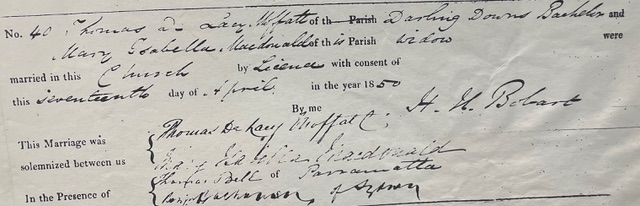 No. 40 Thomas De Lacy Moffatt of the Parish Darling Downs Bachelor and
Mary Isabella Macdonald of this Parish widow were
married in this Church by Licence with consent of
this seventeenth day of April in the year 1850
By me H. H. Bobart
This Marriage was solemnized between us
Thomas De Lacy Moffatt
Mary Isabella Macdonald
In the Presence of
Thomas Bell of Parramatta
of Sydney